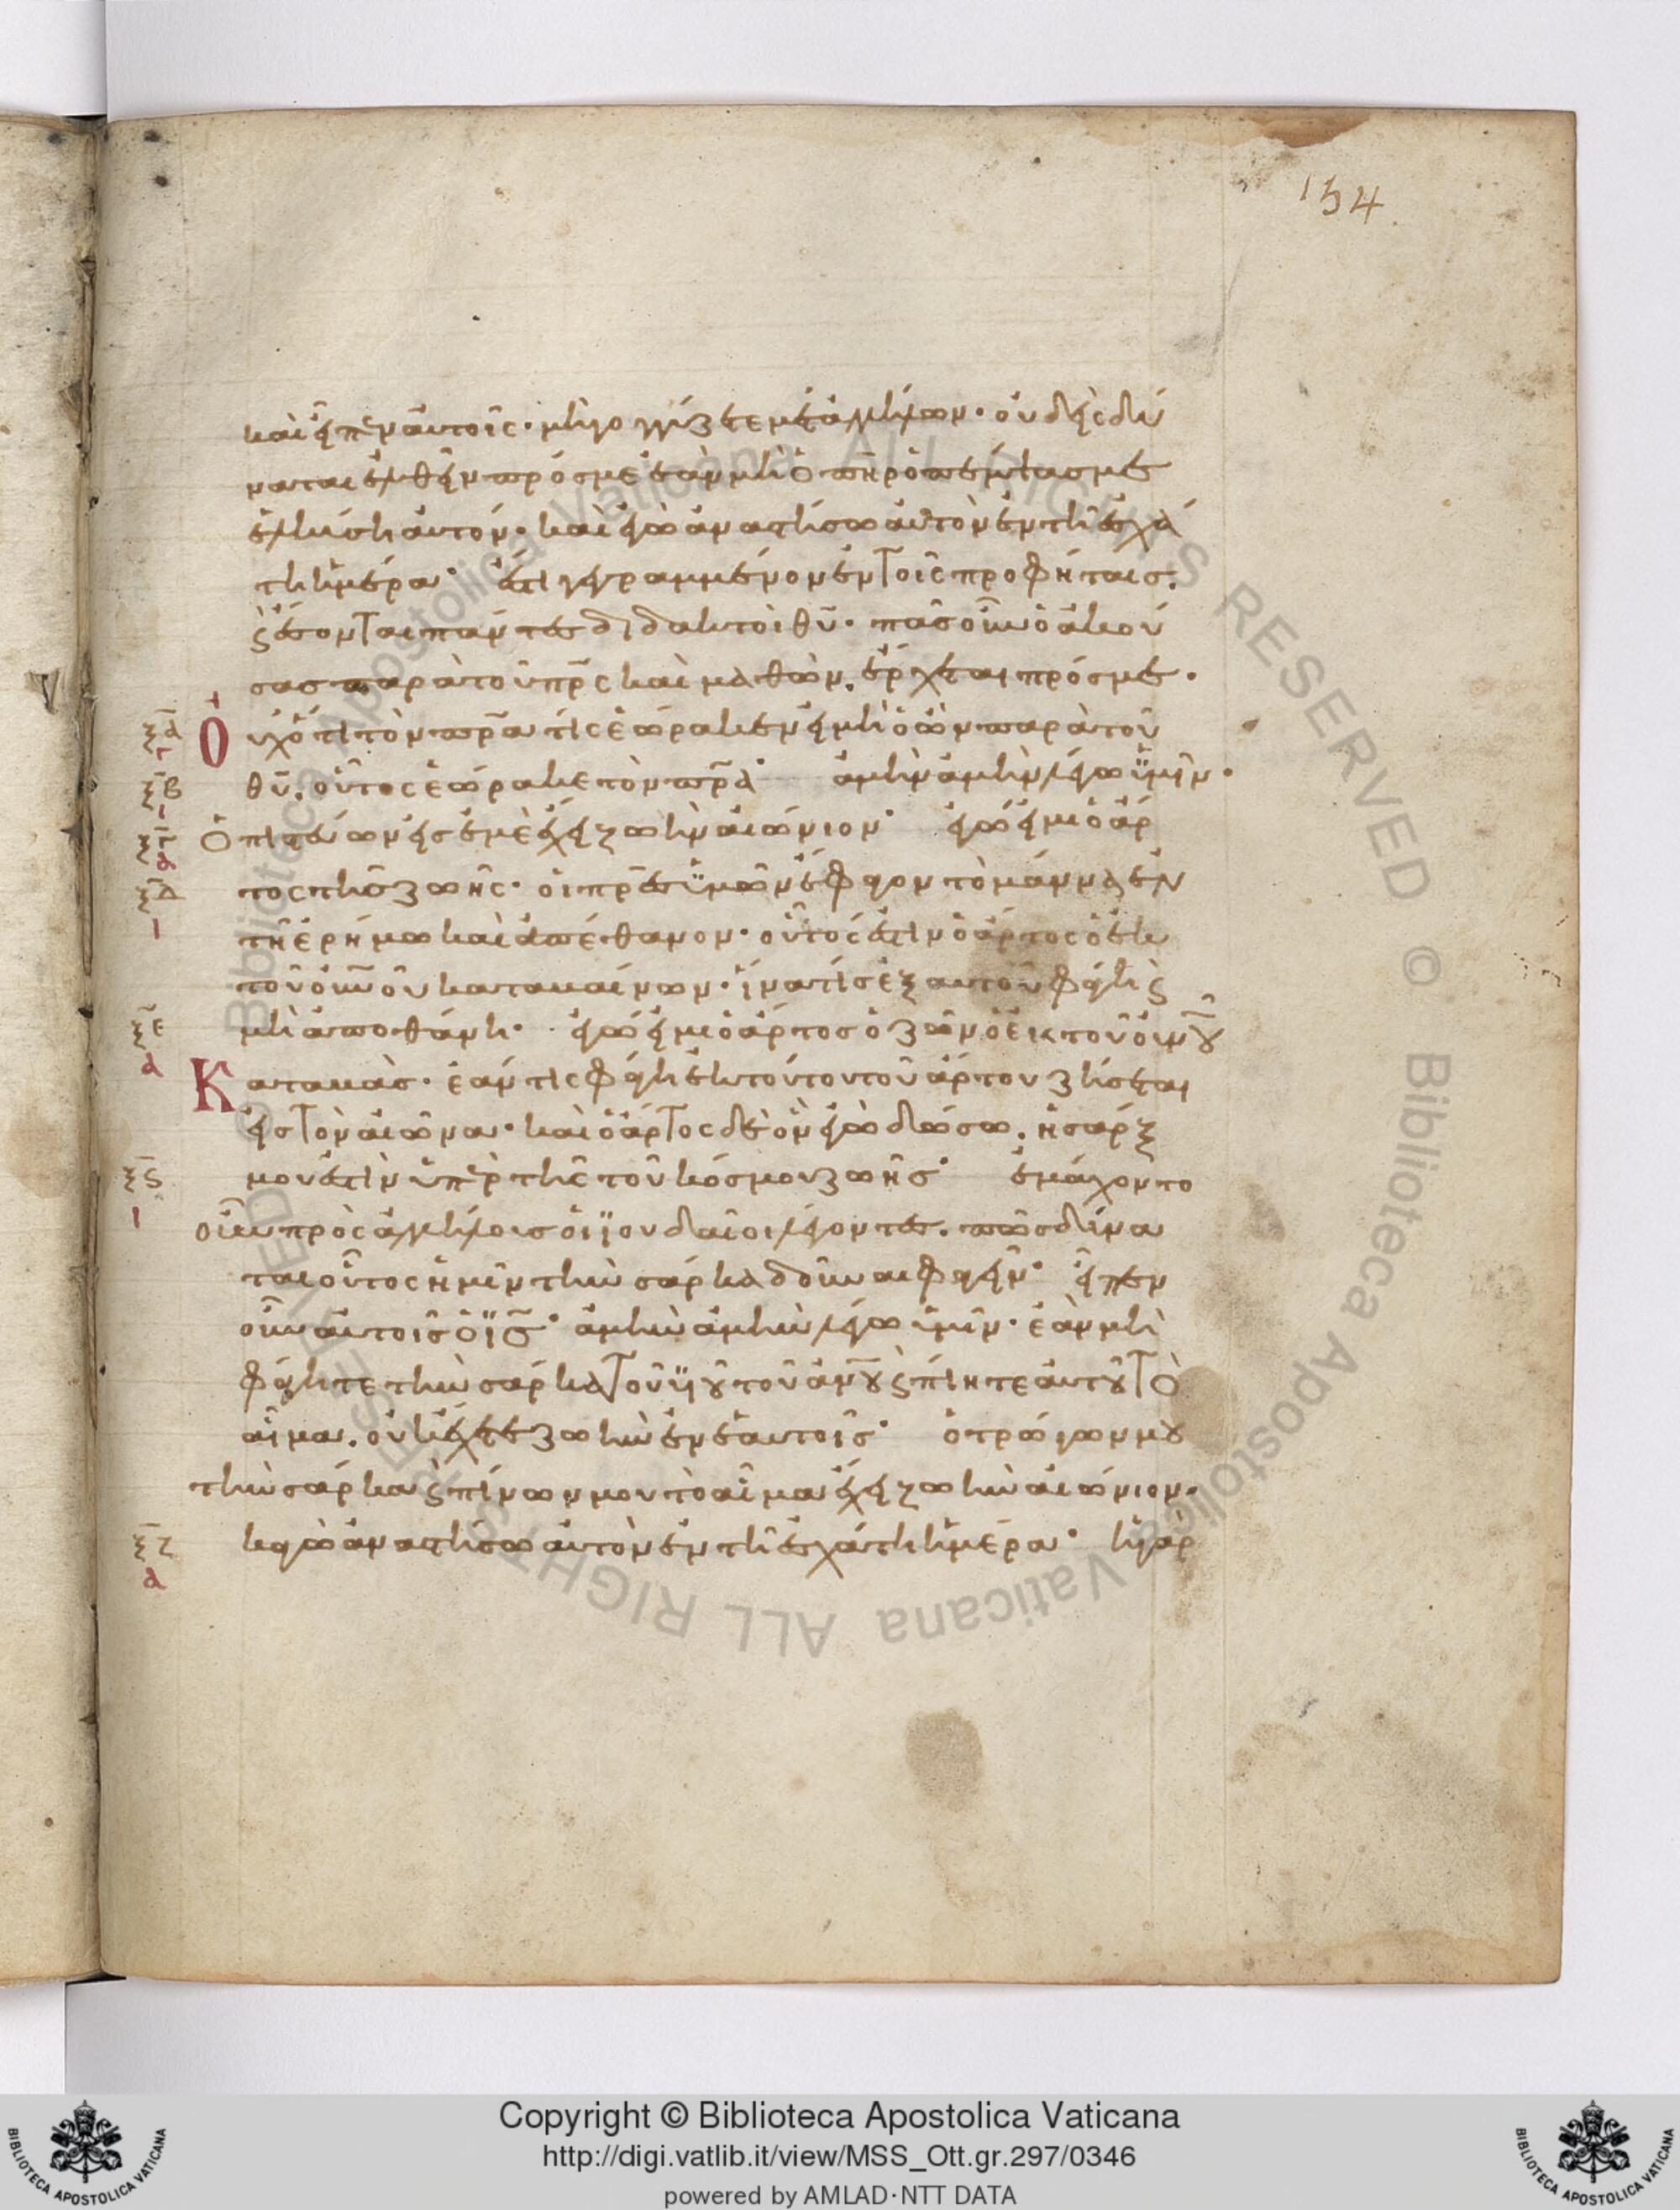 154
καὶ εἶπεν αὐτοῖς· μὴ γογγύζετε μετἀλλήλων· οὐδεὶς δύ
ναται ἐλθεῖν πρός με ἐὰν μὴ ὁ πηρ ὁ πέμψας με
ἑλκύση αὐτόν· καὶ ἐγὼ ἀναστήσω αὐτὸν ἐν τῆ ἐσχά
τη ἡμέρα· ἔστι γεγραμμένον ἐν τοῖς προφήταις·
ϛ ἔσονται πάντες διδακτοὶ θυ· πᾶς οὖν ὁ ἀκού
σας παρὰ τοῦ πρς καὶ μαθὼν, ἔρχεται πρός με·
Οὐχ ὅτι τὸν πρα τίς ἑώρακεν εἰ μὴ ὁ ὢν παρὰ τοῦ
ξα
ι
θυ, οὗτος ἑώρακε τὸν πρα· ἀμὴν ἀμὴν λέγω ὑμῖν·
ξβ
ι
Ὁ πιστεύων εἰς ἐμὲ ἔχει ζωὴν αἰώνιον· ἐγώ εἰμι ὁ ἄρ
ξγ
α
τος τῆς ζωῆς· οἱ πρες ὑμῶν ἔφαγον τὸ μάννα ἐν
ξδ
ι
τῆ ἐρήμω καὶ ἀπέθανον· οὗτός ἐστιν ὁ ἄρτος ὁ ἐκ
τοῦ οὐνοῦ καταβαίνων· ἵνα τίς ἐξ αὐτοῦ φάγη ϛ
μὴ ἀποθάνη· ἐγώ εἰμι ὁ ἄρτος ὁ ζῶν ὁ ἐκ τοῦ οὐνοῦ
ξε
α
Καταβάς· ἐάν τις φάγη ἐκ τούτου τοῦ ἄρτου ζήσεται
εἰς τὸν αἰῶνα· καὶ ὁ ἄρτος δὲ ὃν ἐγὼ δώσω, ἡ σάρξ
μου ἐστὶν ὑπὲρ τῆς τοῦ κόσμου ζωῆς· ἐμάχοντο
ξϛ
ι
οὖν πρὸς ἀλλήλοις οἱ ϊουδαῖοι λέγοντες, πῶς δύνα
ται οὗτος ἡμῖν τὴν σάρκα δοῦναι φαγεῖν· εἶπεν
οὖν αὐτοῖς ὁ ϊς· ἀμὴν ἀμὴν λέγω ὑμῖν· ἐὰν μὴ
φάγητε τὴν σάρκα τοῦ υἱοῦ τοῦ ἀνου ϛ πίητε αὐτοῦ τὸ
αἷμα, οὐκ ἔχετε ζωὴν ἐν ἑαυτοῖς· ὁ τρώγων μου
τὴν σάρκα ϛ πίνων μου τὸ αἷμα ἔχει ζωὴν αἰώνιον·
κἀγὼ ἀναστήσω αὐτὸν ἐν τῆ ἐσχάτη ἡμέρα· ἡ γὰρ
ξζ
α
Copyright © Biblioteca Apostolica Vaticana
http://digi.vatlib.it/view/MSS_Ott.gr.297/0346
powered by AMLAD·NTT DATA
BIBLIOTECA APOSTOLICA VATICANA
BIBLIOTECA APOSTOLICA VATICANA